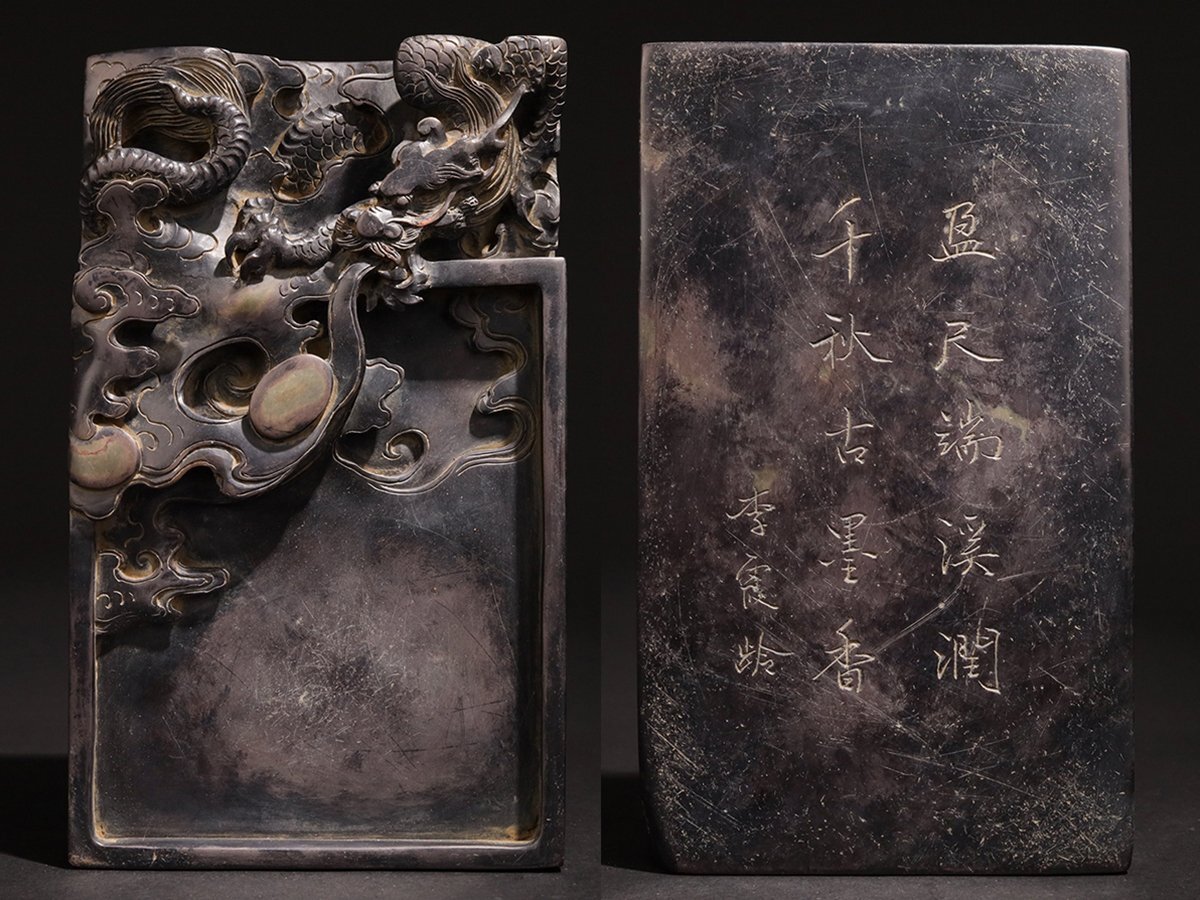 盈尺端溪潤
千秋古墨香
李霞龄